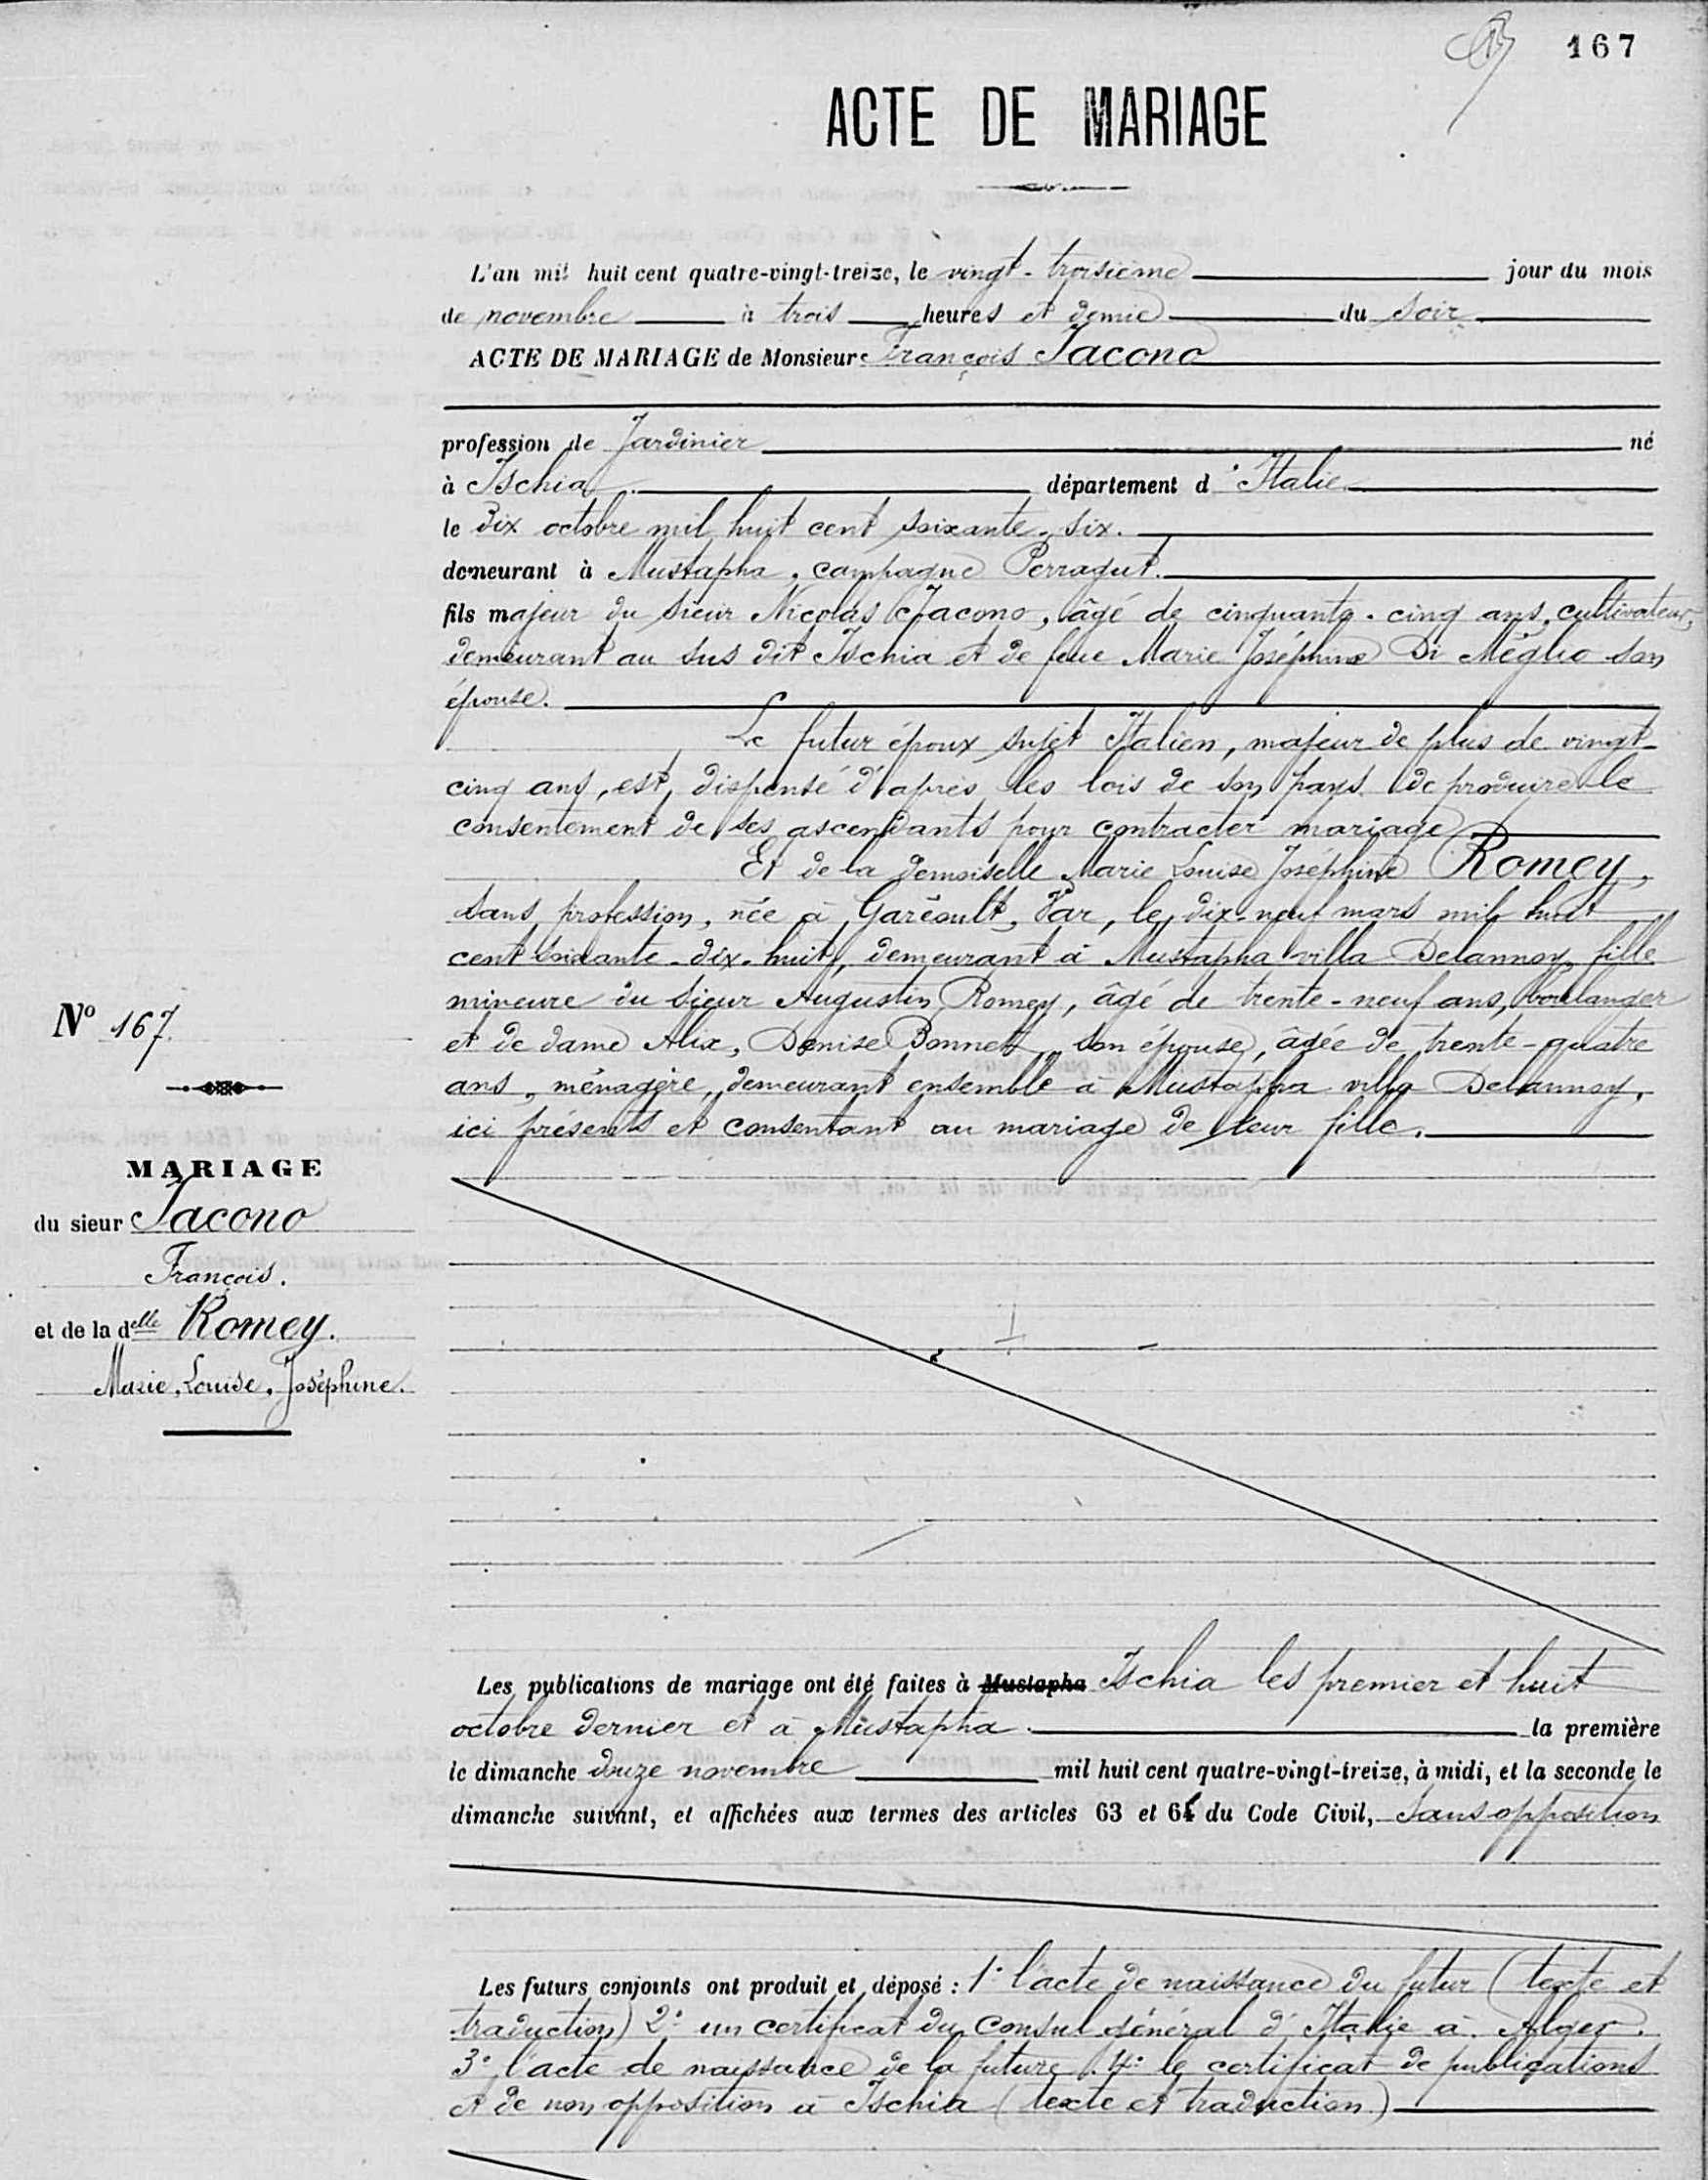 167
ACTE DE MARIAGE
L'an mil huit cent quatre-vingt-treize, le vingt-troisième jour du mois
de novembre à trois heures et demie du soir
ACTE DE MARIAGE de Monsieur François Jacono
profession de Jardinier né
à Ischia département d'Italie
le dix octobre mil huit cent soixante-six.
demeurant à Mustapha, campagne Perragut.
fils majeur du sieur Nicolas Jacono, âgé de cinquante-cinq ans, cultivateur,
demeurant au sus dit Ischia et de feue Marie Joséphine Di Méglio son
épouse.
Le futur époux sujet Italien, majeur de plus de vingt-
cinq ans, est, dispensé d'après les lois de son pays de produire le
consentement de ses ascendants pour contracter mariage
Et de la demoiselle Marie Louise Joséphine Romey,
sans profession, née à Garéoult, Var, le dix-neuf mars mil huit
cent soixante-dix-huit, demeurant à Mustapha villa Delannoy fille
mineure du sieur Augustin Romey, âgé de trente-neuf ans, boulanger
et de dame Alix, Denise Bonnet, son épouse, âgée de trente-quatre
ans, ménagère, demeurant ensemble à Mustapha villa Delannoy,
ici présents et consentant au mariage de leur fille.
N° 167.
MARIAGE
du sieur Jacono
François.
et de la delle Romey.
Marie, Louise, Joséphine.
Les publications de mariage ont été faites à Mustapha Ischia les premier et huit
octobre dernier et à Mustapha. la première
le dimanche douze novembre mil huit cent quatre-vingt-treize, à midi, et la seconde le
dimanche suivant, et affichées aux termes des articles 63 et 64 du Code Civil, sans opposition
Les futurs conjoints ont produit et déposé : 1° l'acte de naissance du futur (texte et
traduction) 2° un certificat du Consul général d'Italie à Alger.
3° l'acte de naissance de la future. 4° le certificat de publications
et de non opposition à Ischia (texte et traduction)